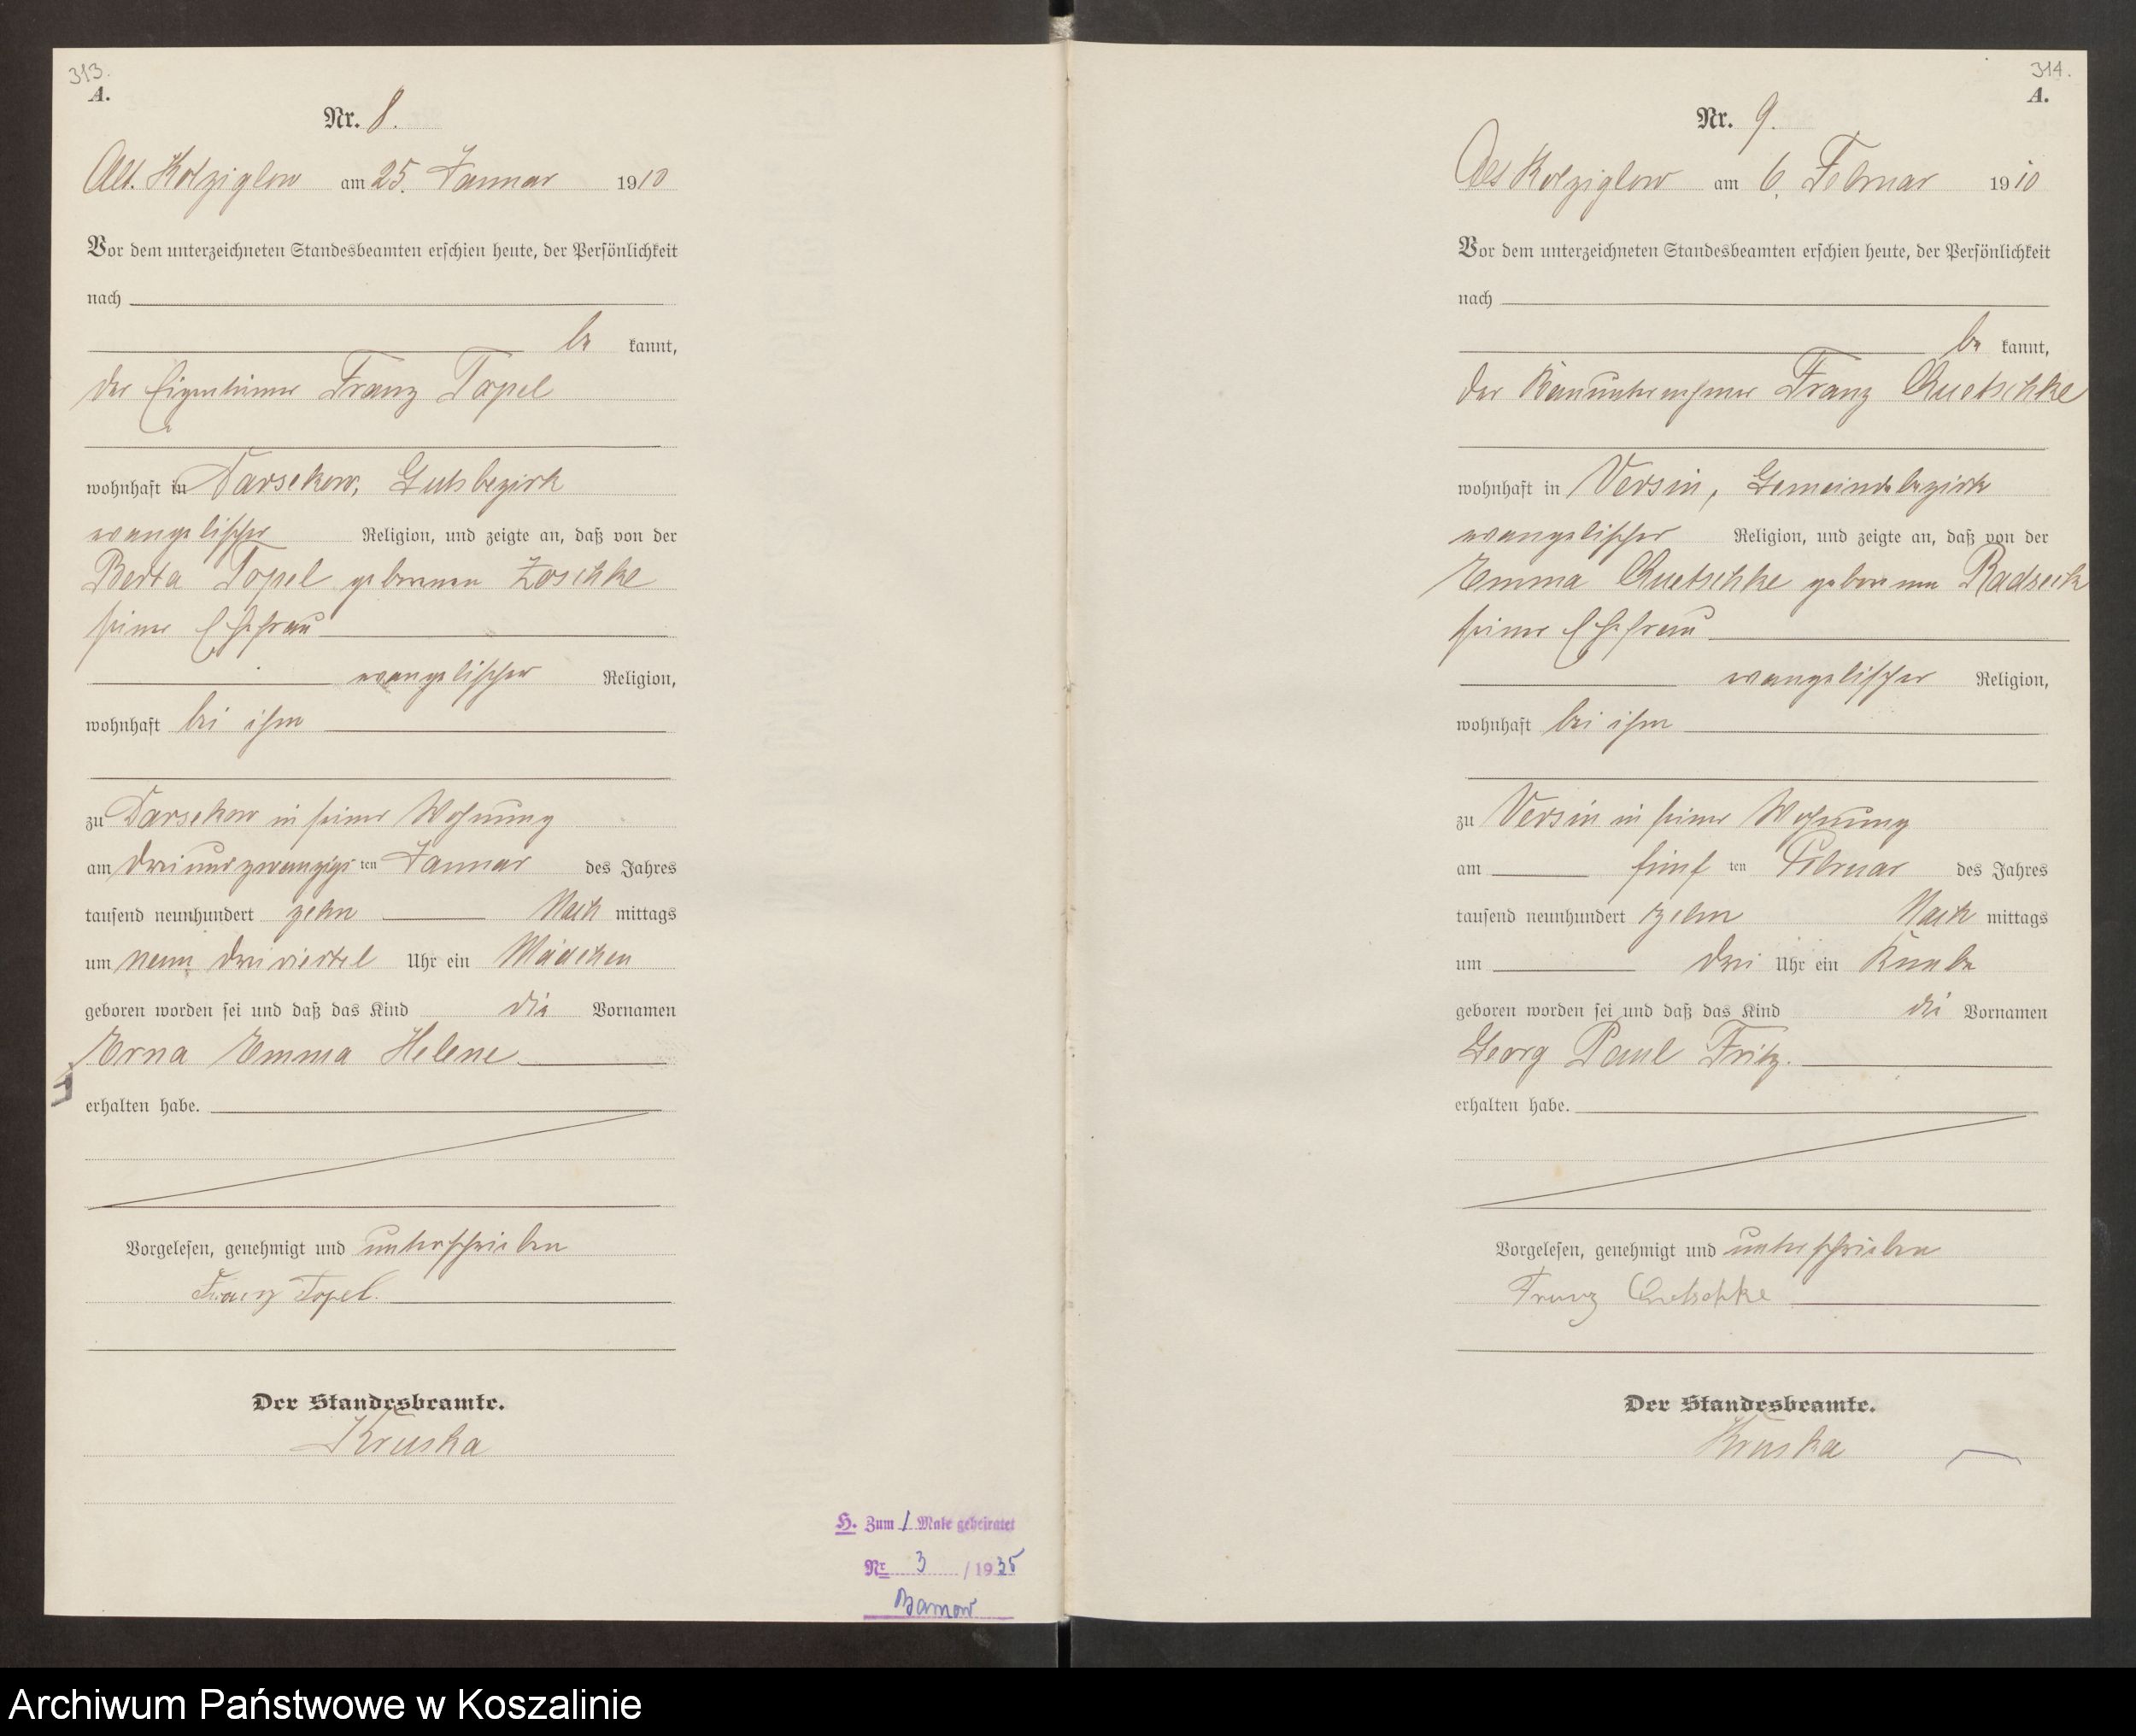 313.
A.
Nr. 8.
Alt. Kolziglow am 25. Januar 1910
Vor dem unterzeichneten Standesbeamten erschien heute, der Persönlichkeit
nach
be kannt,
der Eigentümer Franz Topel
wohnhaft in Darsekow, Gutsbezirk
evangelischer Religion, und zeigte an, daß von der
Berta Topel geborenen Zoschke
seiner Ehefrau
evangelischer Religion,
wohnhaft bei ihm
zu Darsekow in seiner Wohnung
am dreiundzwanzigs ten Januar des Jahres
tausend neunhundert zehn Nach mittags
um neun dreiviertel Uhr ein Mädchen
geboren worden sei und daß das Kind die Vornamen
Erna Emma Helene
erhalten habe.
Vorgelesen, genehmigt und unterschrieben
Franz Topel.
Der Standesbeamte.
Kruska
H. Zum 1 Male geheiratet
Nr 3 / 1935
Barnow
314.
A.
Nr. 9.
Alt Kolziglow am 6. Februar 1910
Vor dem unterzeichneten Standesbeamten erschien heute, der Persönlichkeit
nach
be kannt,
der Bauunternehmer Franz Quetschke
wohnhaft in Versin, Gemeindebezirk
evangelischer Religion, und zeigte an, daß von der
Emma Quetschke geborenen Radseck
seiner Ehefrau
evangelischer Religion,
wohnhaft bei ihm
zu Versin in seiner Wohnung
am fünf ten Februar des Jahres
tausend neunhundert zehn Nach mittags
um drei Uhr ein Knabe
geboren worden sei und daß das Kind die Vornamen
Georg Paul Fritz.
erhalten habe.
Vorgelesen, genehmigt und unterschrieben
Franz Quetschke
Der Standesbeamte.
Kruska
Archiwum Państwowe w Koszalinie